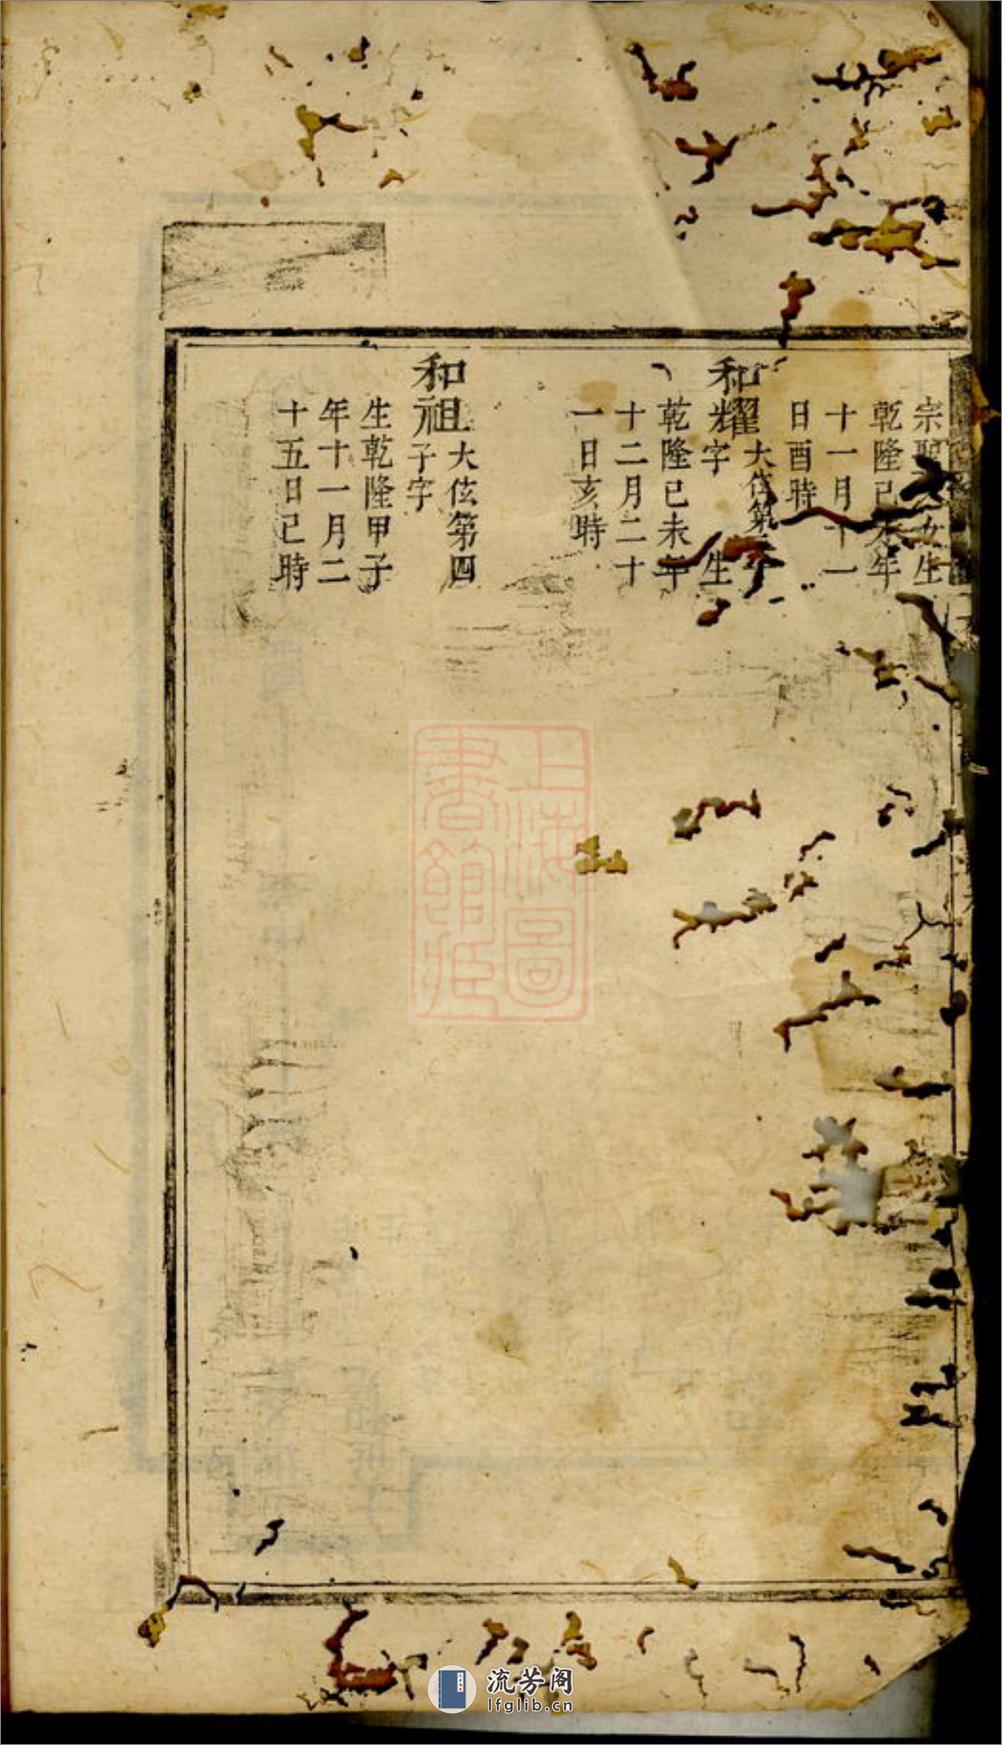 宗聖公女生
乾隆己未年
十一月十一
日酉時
和耀大伭第三
字　生
乾隆己未年
十二月二十
一日亥時
和祖大伭第四
子字
生乾隆甲子
年十一月二
十五日巳時
上海圖
書館藏
流芳阁
lfglib.cn